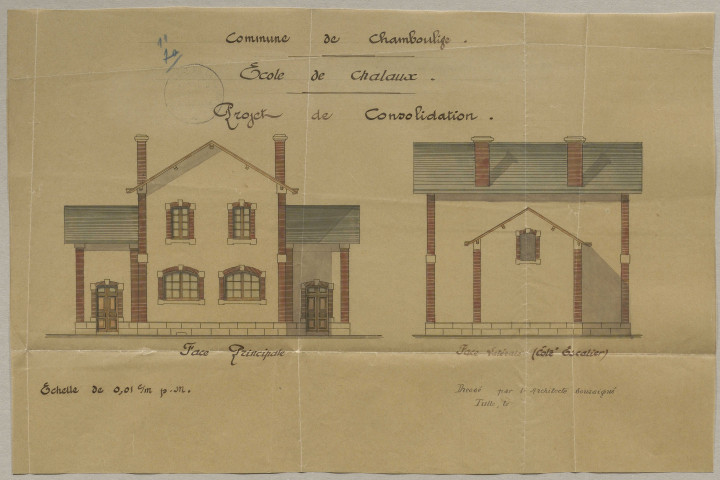 Commune de Chamboulive.
École de Chalaux.
Projet de Consolidation.
Face Principale
Face Latérale (Coté Escalier)
Echelle de 0,01 c/m p. M.
Dressé par l'Architecte soussigné
Tulle, le